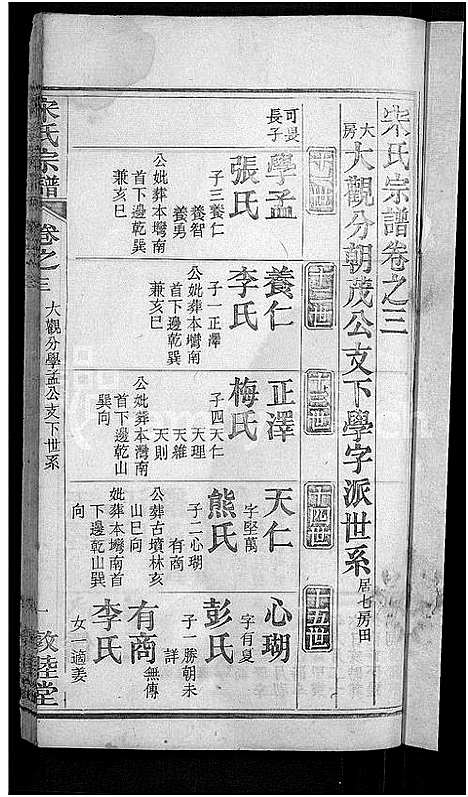 宋氏宗譜卷之三
大房大觀分朝茂公支下學字派世系居七房田
十二世
可畏長子
學孟
張氏
子三養仁
養智
養勇
公妣葬本塆南
首下邊乾巽
兼亥巳
十三世
養仁
李氏
子一正澤
公妣葬本塆南
首下邊乾巽
兼亥巳
十三世
正澤
梅氏
子四天仁
天理
天雜
天則
公妣葬本灣南
首下邊乾山
巽向
十四世
天仁
字堅萬
熊氏
子二心瑚
有商
公葬古墳林亥
山巳向
妣葬本塆南首
下邊乾山巽
向
十五世
心瑚
字有夏
彭氏
子一勝朝未
詳
有商無傳
李氏
女一適姜
宋氏宗譜
卷之三
大觀分學孟公支下世系
一
敦睦堂